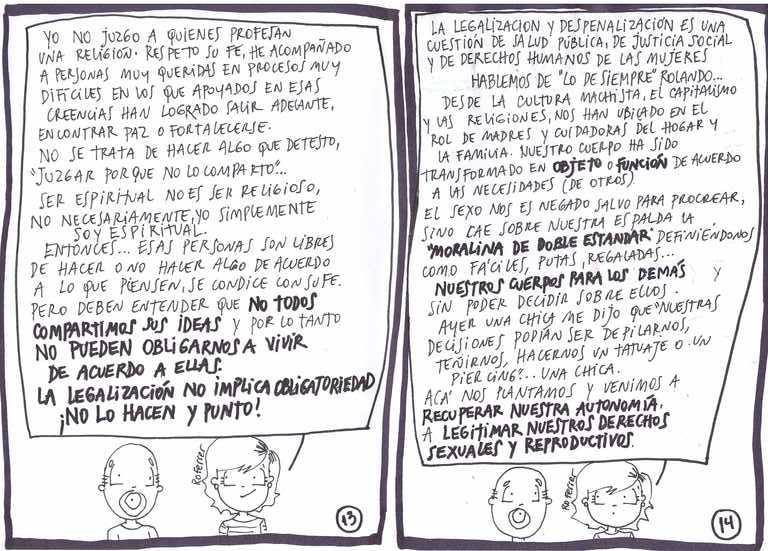 YO NO JUZGO A QUIENES PROFESAN
UNA RELIGIÓN. RESPETO SU FE, HE ACOMPAÑADO
A PERSONAS MUY QUERIDAS EN PROCESOS MUY
DIFÍCILES EN LOS QUE APOYADOS EN ESAS
CREENCIAS HAN LOGRADO SALIR ADELANTE,
ENCONTRAR PAZ O FORTALECERSE.
NO SE TRATA DE HACER ALGO QUE DETESTO,
"JUZGAR PORQUE NO LO COMPARTO"...
SER ESPIRITUAL NO ES SER RELIGIOSO,
NO NECESARIAMENTE, YO SIMPLEMENTE
SOY ESPIRITUAL.
ENTONCES... ESAS PERSONAS SON LIBRES
DE HACER O NO HACER ALGO DE ACUERDO
A LO QUE PIENSEN, SE CONDICE CON SU FE.
PERO DEBEN ENTENDER QUE NO TODOS
COMPARTIMOS SUS IDEAS Y POR LO TANTO
NO PUEDEN OBLIGARNOS A VIVIR
DE ACUERDO A ELLAS.
LA LEGALIZACIÓN NO IMPLICA OBLIGATORIEDAD
¡NO LO HACEN Y PUNTO!
RoFerrer
13
LA LEGALIZACION Y DESPENALIZACIÓN ES UNA
CUESTIÓN DE SALUD PÚBLICA, DE JUSTICIA SOCIAL
Y DE DERECHOS HUMANOS DE LAS MUJERES
HABLEMOS DE "LO DE SIEMPRE" ROLANDO...
DESDE LA CULTURA MACHISTA, EL CAPITALISMO
Y LAS RELIGIONES, NOS HAN UBICADO EN EL
ROL DE MADRES Y CUIDADORAS DEL HOGAR Y
LA FAMILIA. NUESTRO CUERPO HA SIDO
TRANSFORMADO EN OBJETO O FUNCIÓN DE ACUERDO
A LAS NECESIDADES (DE OTROS)
EL SEXO NOS ES NEGADO SALVO PARA PROCREAR,
SINO CAE SOBRE NUESTRA ESPALDA LA
"MORALINA DE DOBLE ESTANDAR" DEFINIÉNDONOS
COMO FÁCILES, PUTAS, REGALADAS...
NUESTROS CUERPOS PARA LOS DEMÁS Y
SIN PODER DECIDIR SOBRE ELLOS.
AYER UNA CHICA ME DIJO QUE "NUESTRAS
DECISIONES PODÍAN SER DEPILARNOS,
TEÑIRNOS, HACERNOS UN TATUAJE O UN
PIERCING"... UNA CHICA.
ACÁ NOS PLANTAMOS Y VENIMOS A
RECUPERAR NUESTRA AUTONOMÍA,
A LEGITIMAR NUESTROS DERECHOS
SEXUALES Y REPRODUCTIVOS.
RoFerrer
14